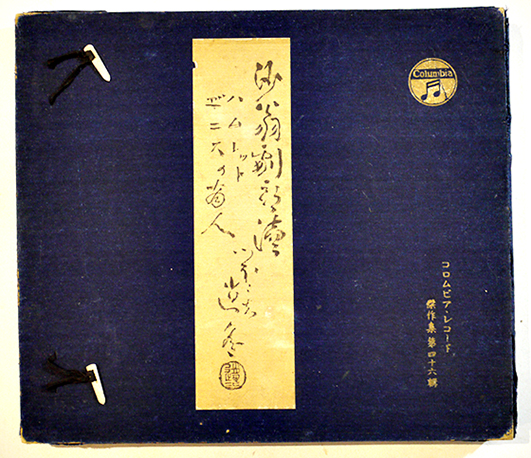 Columbia
コロムビア・レコード
傑作集第四十六輯
沙翁劇朗讀
ハムレット
ヹニスの商人
逍遙